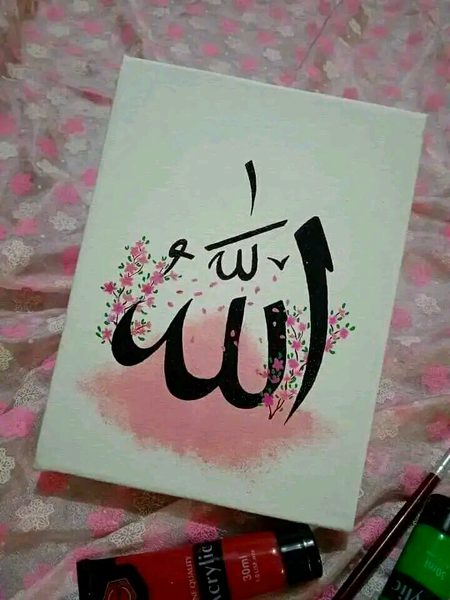 الله
Acrylic
30ml
30ml